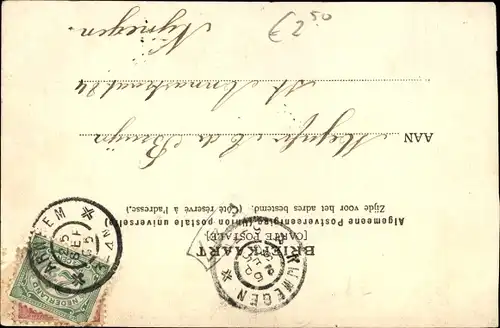 Algemeene Postvereeniging (Union postale universelle)
BRIEFKAART
[CARTE POSTALE]
Zijde voor het adres bestemd. (Côté réservé à l'adresse.)
AAN Mejufr. C de Bruijn
St Annastraat 84
Nijmegen.
€ 2 50
ARNHEM
5 SEP
NIJMEGEN
NEDERLAND